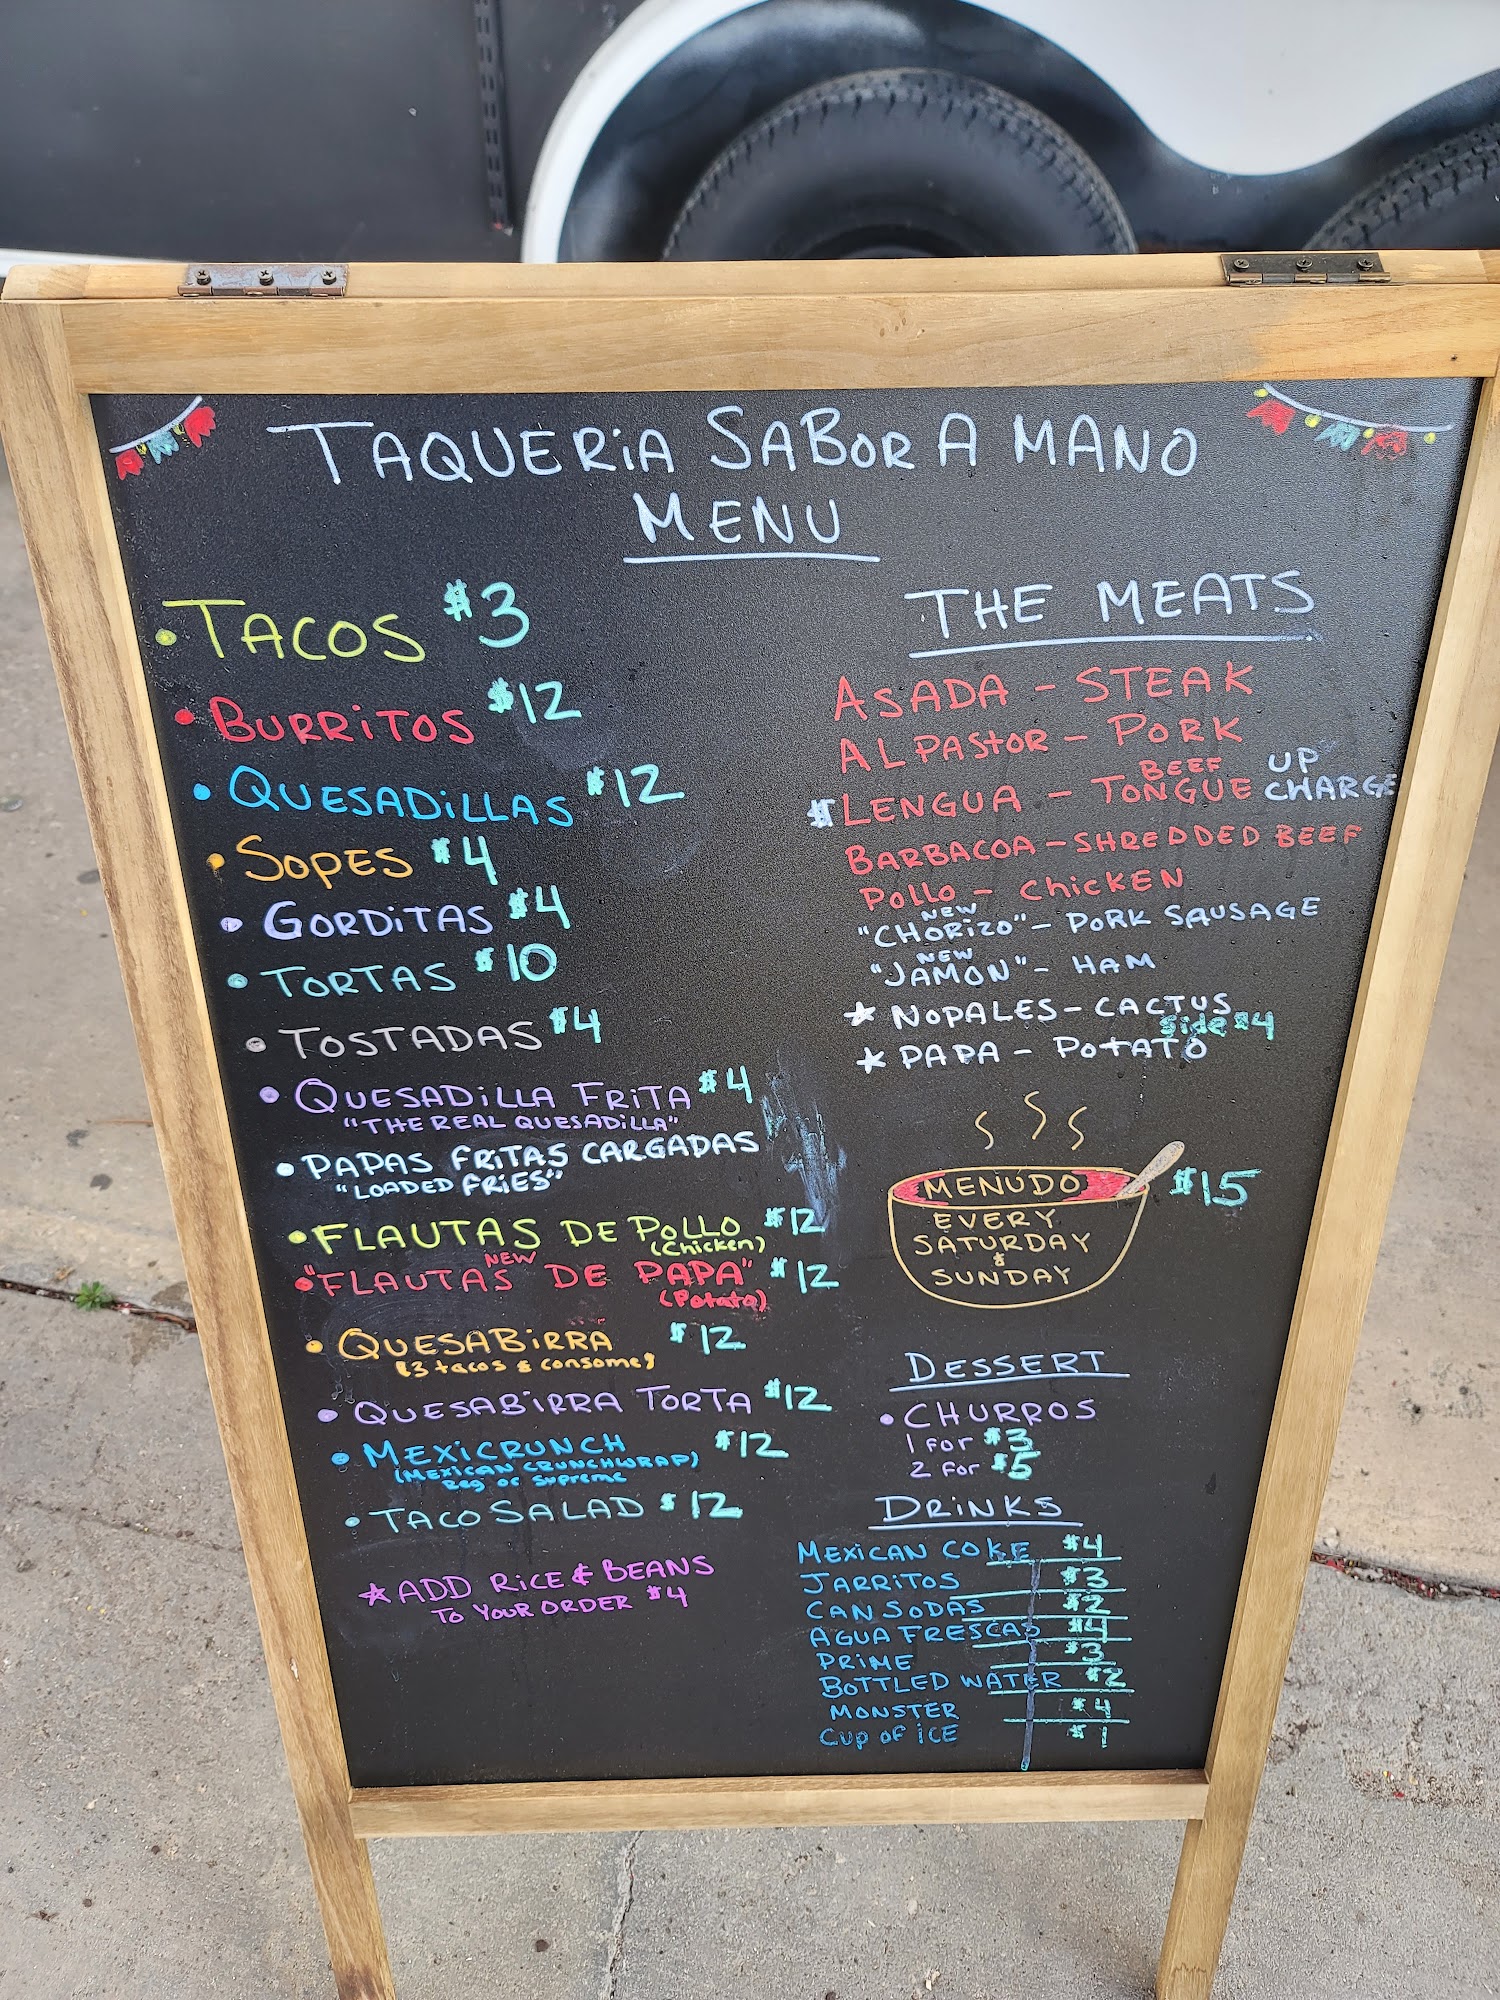 TAQUERiA SABOR A MANO
MENU
• TACOS $3
• BURRiTOS $12
• QUESADiLLAS $12
• SOPES $4
• GORDiTAS $4
• TORTAS $10
• TOSTADAS $4
• QUESADiLLA FRiTA $4
"THE REAL QUESADiLLA"
• PAPAS FRiTAS CARGADAS
"LOADED FRiES"
• FLAUTAS DE POLLO $12
(Chicken)
NEW
• "FLAUTAS DE PAPA" $12
(Potato)
• QUESABiRRA $12
(3 tacos & consome)
• QUESABiRRA TORTA $12
• MEXiCRUNCH $12
(MEXiCAN CRUNCHWRAP)
Reg or Supreme
• TACO SALAD $12
☆ ADD RiCE & BEANS
TO YOUR ORDER $4
THE MEATS
ASADA - STEAK
AL PAStOR - PORK
BEEF UP
$ LENGUA - TONGUE CHARGE
BARBACOA - SHREDDED BEEF
Pollo - ChicKEN
NEW
"CHORizO" - PORK SAUSAGE
NEW
"JAMON" - HAM
☆ NOPALES - CACTUS
Side $4
☆ PAPA - POtATO
MENUDO $15
EVERY
SATURDAY
&
SUNDAY
DESSERT
• CHURROS
1 for $3
2 for $5
DRiNKS
MEXiCAN COKE $4
JARRiTOS $3
CAN SODAS $2
AGUA FRESCAS $4
PRiME $3
BOTTLED WATER $2
MONSTER $4
Cup of iCE $1